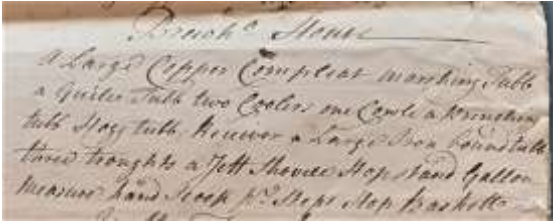 House
A Large Copper Compleat marshing Tubb
a Guile Tubb two Coolers one Cowle a
tubb Hogg tubb a Large Iron bound tubb
three troughts a Jett Shovel Hopstand Gallon
Measure hand Scoop pr. Steps Hop Baskett